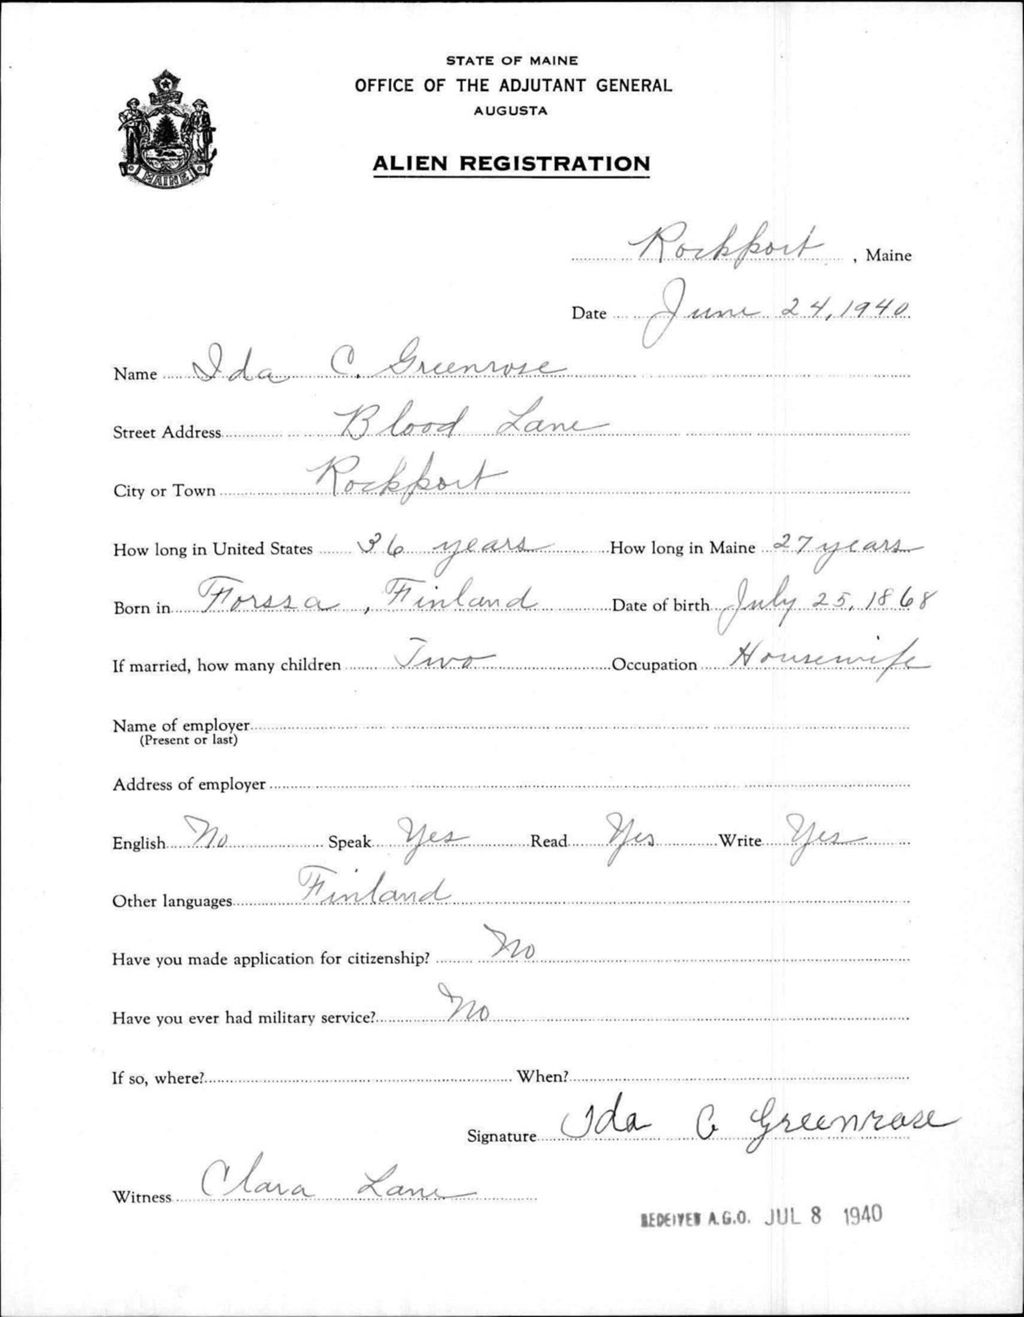 STATE OF MAINE
OFFICE OF THE ADJUTANT GENERAL
AUGUSTA
ALIEN REGISTRATION
MAINE
Rockport, Maine
Date June 24, 1940
Name Ida C. Greenrose
Street Address Blood Lane
City or Town Rockport
How long in United States 36 years How long in Maine 27 years
Born in Forssa, Finland Date of birth July 25, 1868
If married, how many children Two Occupation Housewife
Name of employer
(Present or last)
Address of employer
English No Speak Yes Read Yes Write Yes
Other languages Finland
Have you made application for citizenship? No
Have you ever had military service? No
If so, where? When?
Signature Ida C Greenrose
Witness Clara Lane
RECEIVED A.G.O. JUL 8 1940